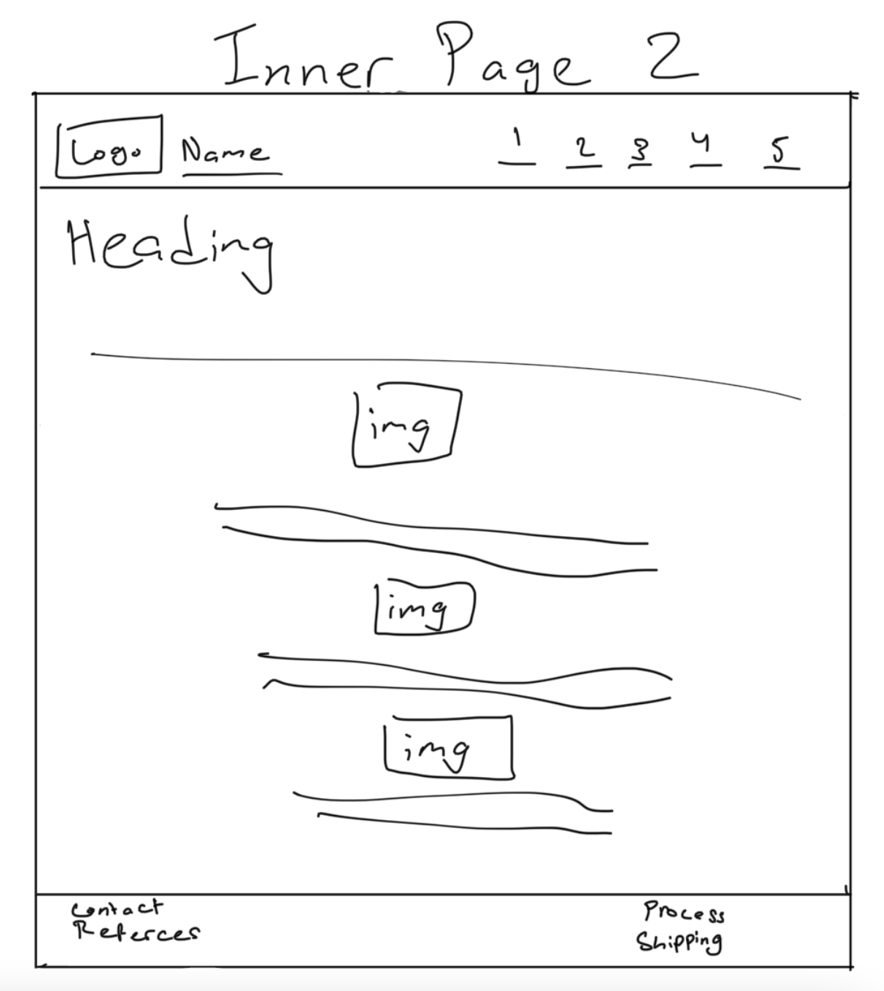 Inner Page 2
Logo Name 1 2 3 4 5
Heading
img
img
img
Contact Process
Referces Shipping